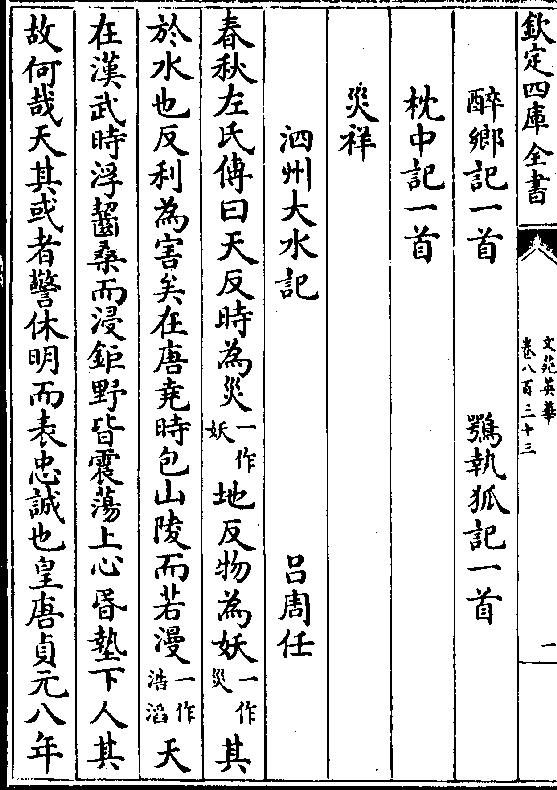 欽定四庫全書
文苑英華
卷八百三十三
二
醉鄉記一首 鶚執狐記一首
枕中記一首
災祥
泗州大水記 呂周任
春秋左氏傳曰天反時為災一作妖地反物為妖一作災其
於水也反利為害矣在唐堯時包山陵而若漫一作浩滔天
在漢武時浮齧桑而浸鉅野皆震蕩上心昬墊下人其
故何哉天其或者警休明而表忠誠也皇唐貞元八年